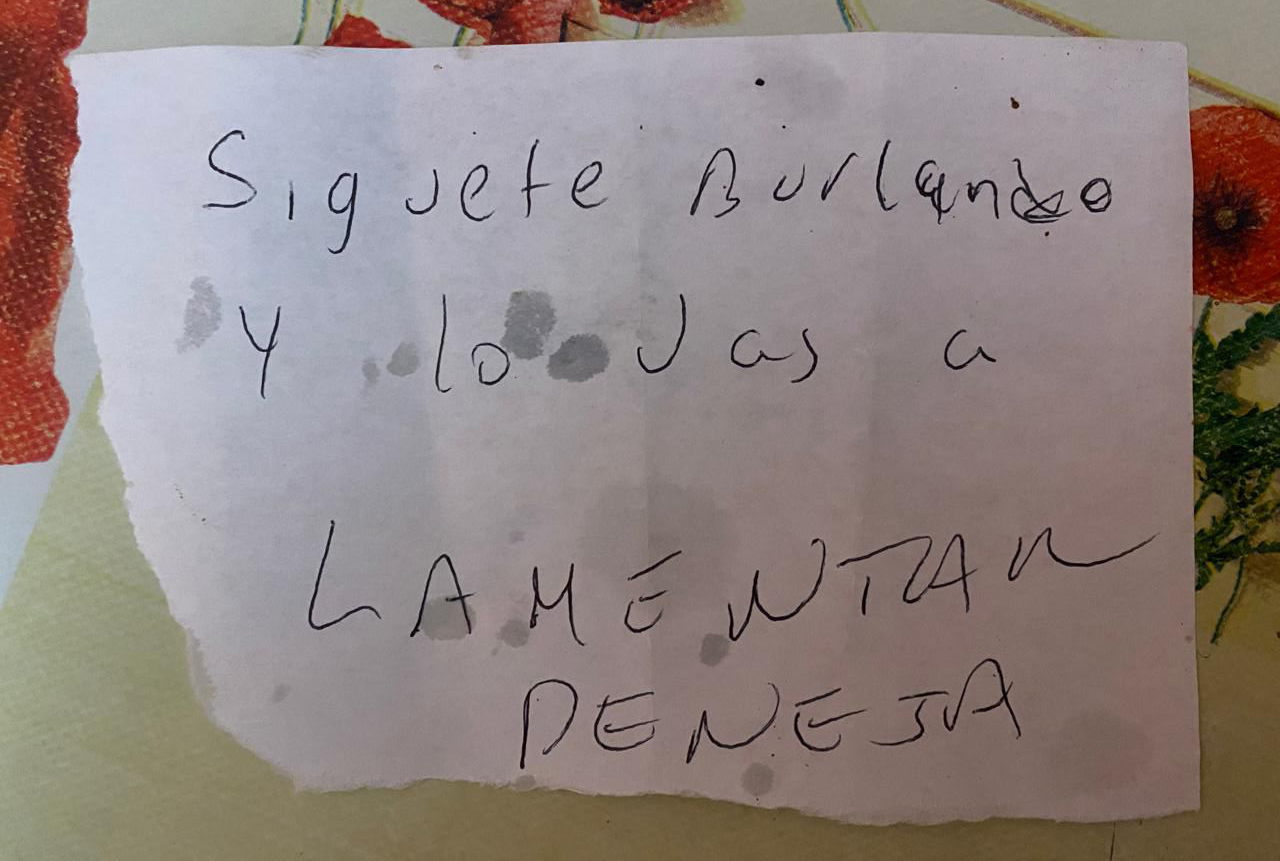 Siguete Burlando
Y lo vas a
LAMENTAR
PENEJA